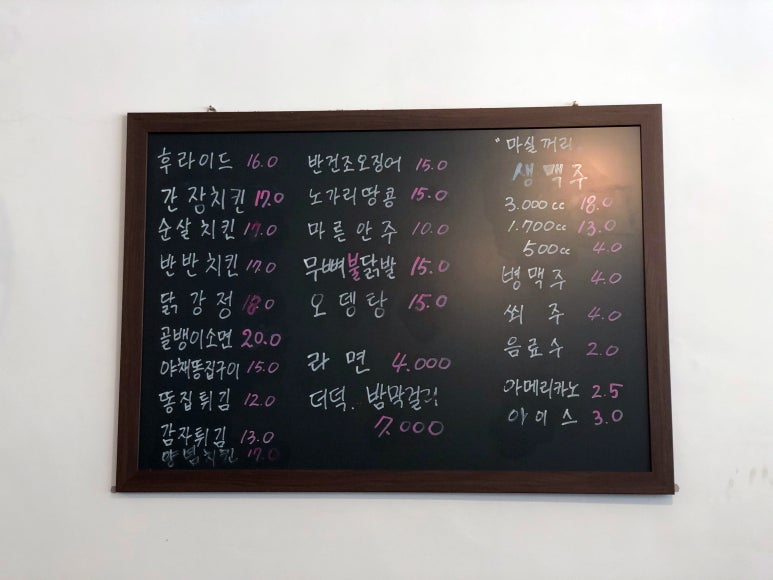 후라이드 16.0
간장치킨 17.0
순살치킨 17.0
반반치킨 17.0
닭강정 18.0
골뱅이소면 20.0
야채똥집구이 15.0
똥집튀김 12.0
감자튀김 13.0
양념치킨 17.0
반건조오징어 15.0
노가리땅콩 15.0
마른안주 10.0
무뼈불닭발 15.0
오뎅탕 15.0
라면 4.000
더덕. 밤막걸리
7.000
"마실꺼리.
생맥주
3.000cc 18.0
1.700cc 13.0
500cc 4.0
병맥주 4.0
쐬주 4.0
음료수 2.0
아메리카노 2.5
아이스 3.0